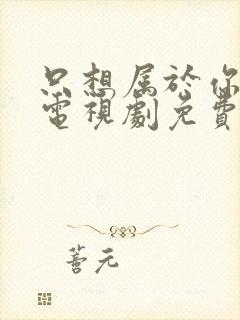 只想属於你
電視劇免費
善元